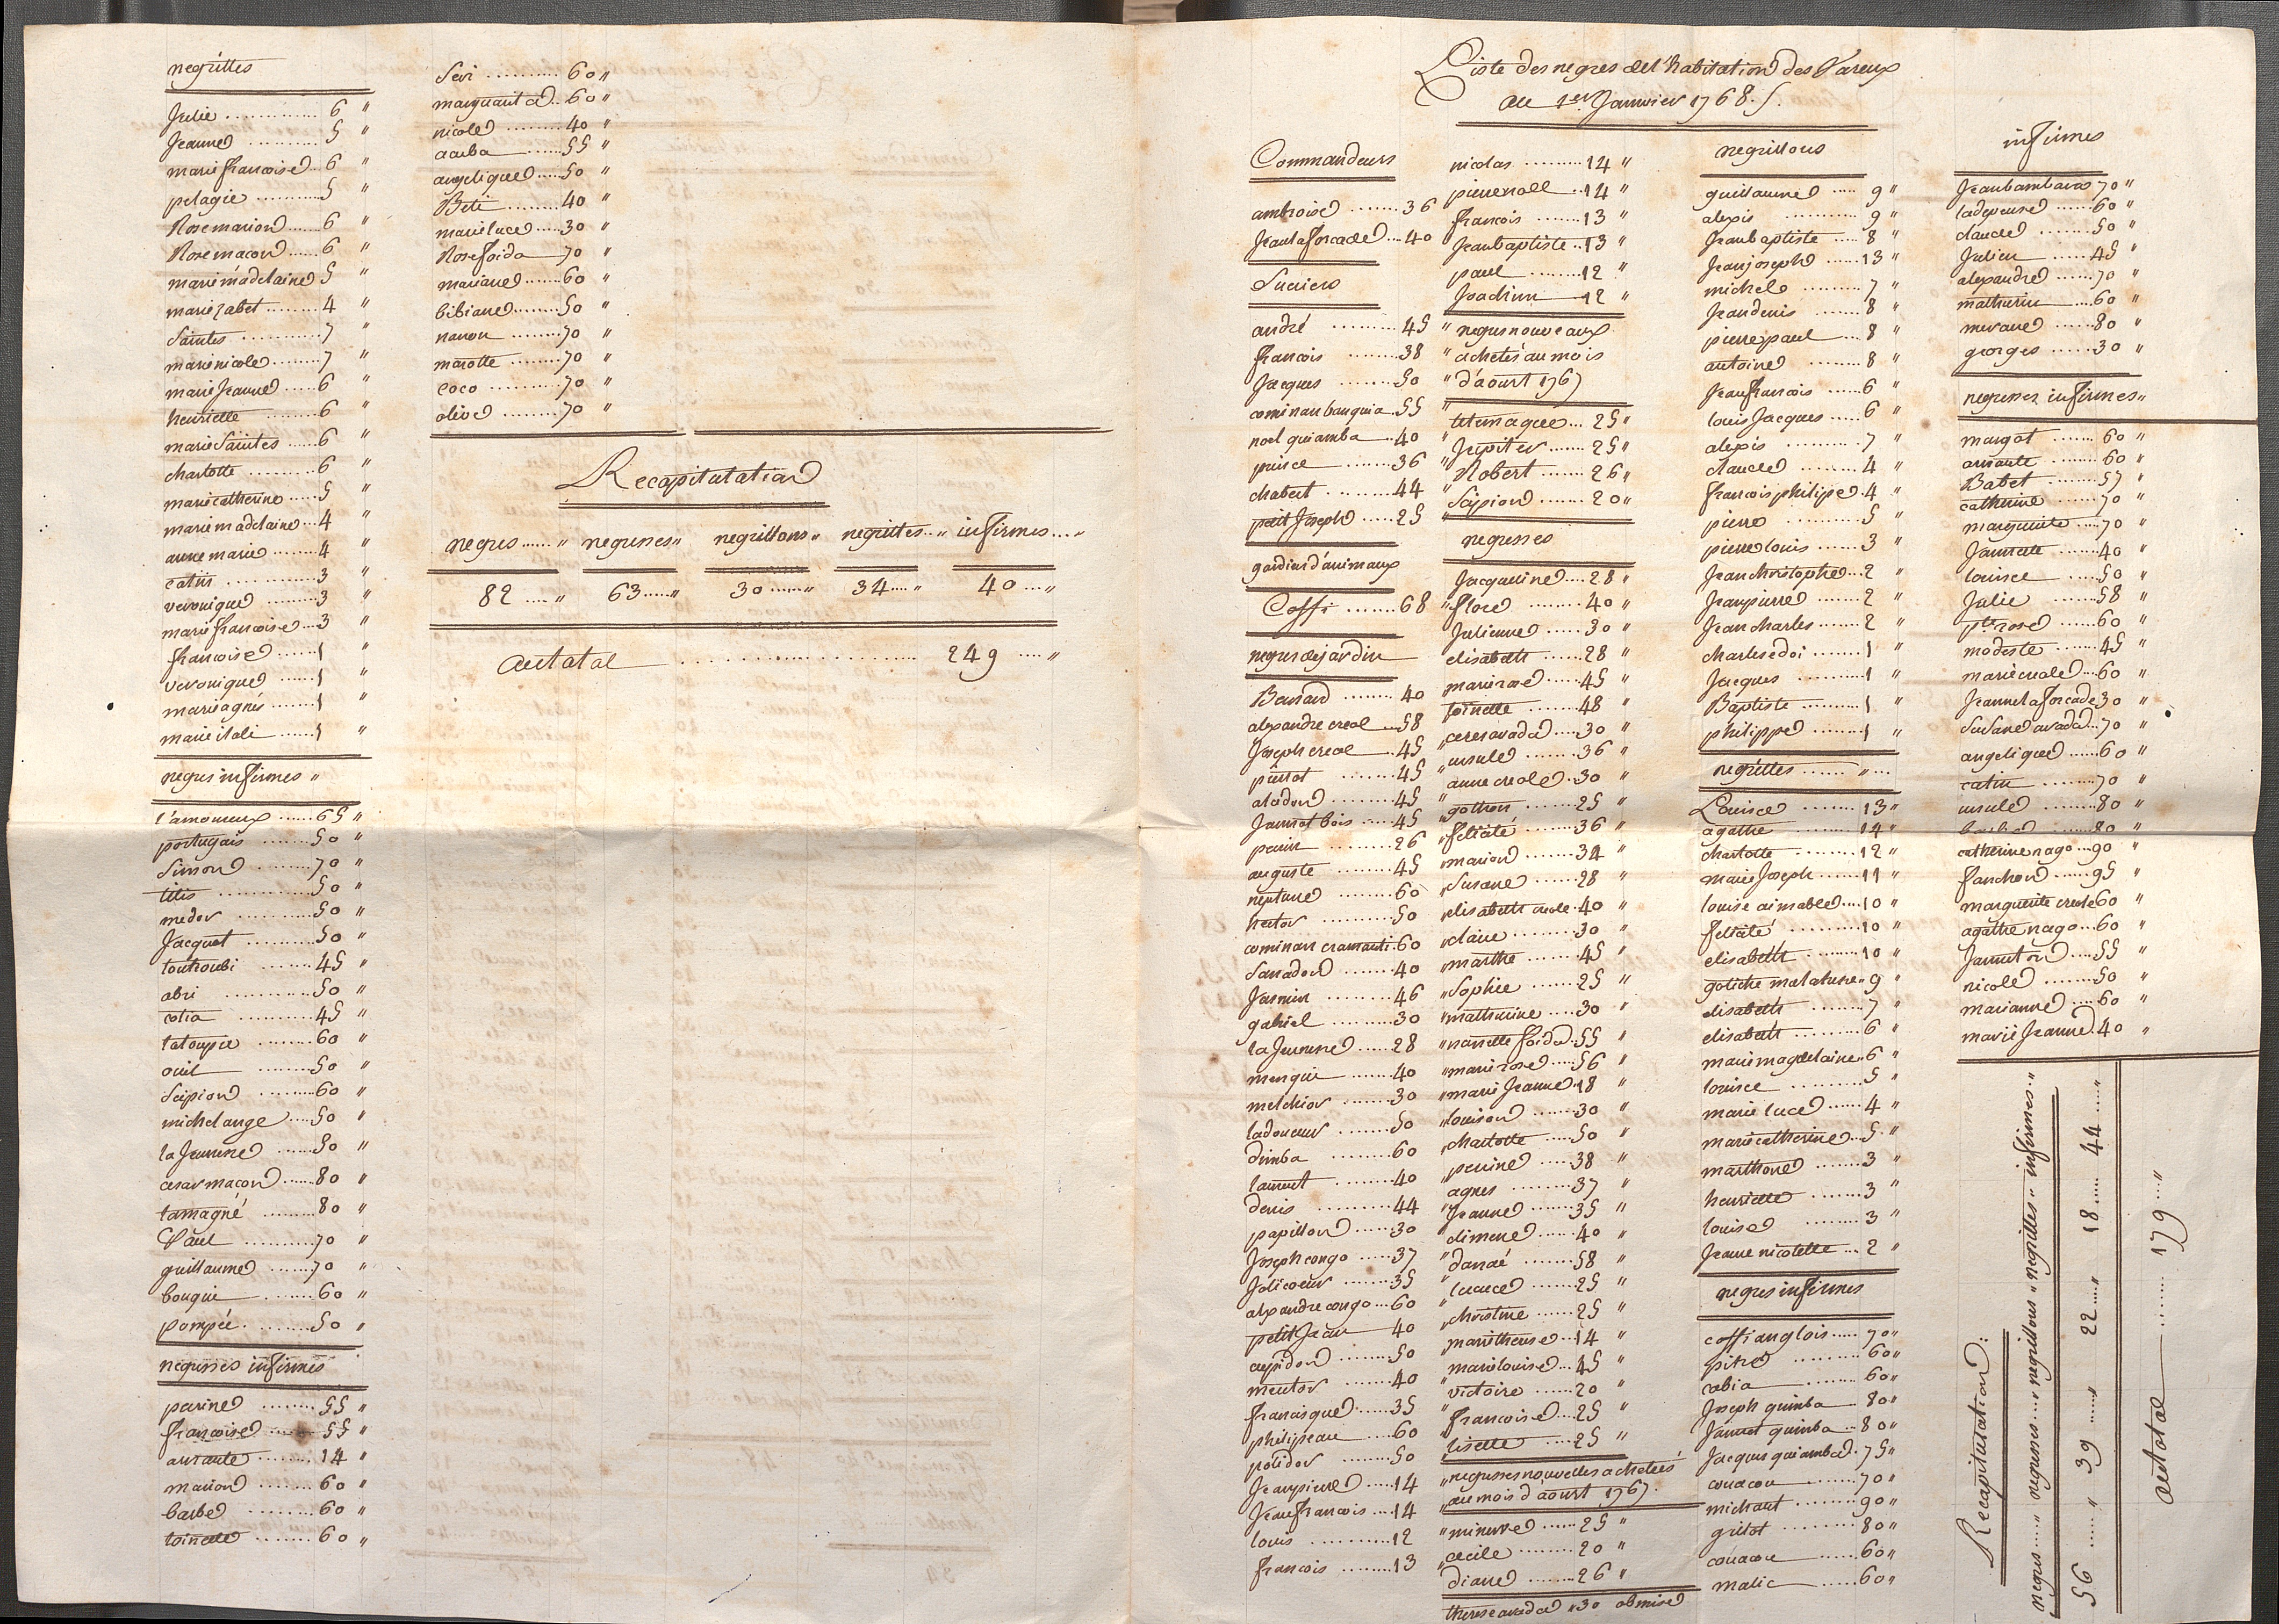 negrittes
Julie ............ 6 "
Jeanne .......... 5 "
marie francoise .. 6 "
pelagie .......... 5 "
Rose marion ...... 6 "
Rose macon ...... 6 "
marie madelaine 5 "
marie zabet ........ 4 "
Saintes ............ 7 "
marie nicole ........ 7 "
marie Jeanne ..... 6 "
henriette ........ 6 "
marie Saintes ..... 6 "
charlotte ......... 6 "
marie catherine ..... 5 "
marie madelaine ... 4 "
anne marie ........ 4 "
catin ............ 3 "
veronique ........ 3 "
marie francoise ... 3 "
francoise ...... 1 "
veronique ...... 1 "
marie agnés ....... 1 "
marie itali ...... 1 "
negres infirmes "
l'amoureux ...... 65 "
portugais ....... 50 "
Simon ........ 70 "
titis ............ 50 "
medor ........... 50 "
Jacquot .......... 50 "
toutroubi ........ 45 "
abri ............ 50 "
cotia .......... 45 "
latoupie ........ 60 "
ouil ........ 50 "
Scipion ......... 60 "
michel ange ..... 50 "
la Jeunesse ...... 50 "
cesar macon ...... 80 "
tamagné ......... 80 "
Paul .......... 70 "
guillaume ....... 70 "
bouqui ........ 60 "
pompée ......... 50 "
negresses infirmes
perine ........ 55 "
francoise ...... 55 "
aurante ........ 14 "
marion ........ 60 "
barbe ........ 60 "
toinette ......... 60 "
Seri .......... 60 "
marguarita .. 60 "
nicole ......... 40 "
acuba ...... 55 "
angelique ..... 50 "
Beti ......... 40 "
marie luce .... 30 "
Rose foida 70 "
mariane ....... 60 "
bibiane ........ 50 "
nanon ....... 70 "
marotte ....... 70 "
coco .......... 70 "
olive ........ 70 "
Recapitulation
negres ...... " negresses " negrillons " negrittes .. " infirmes .... "
82 .... " 63 ..... " 30 ...... " 34 .... " 40 .... "
autotal .................... 249 .... "
Liste des negres del'habitation des Vareux
au 1er Janvier 1768.
Commandeurs
ambroise ........ 36
Jean la forcade ... 40
Sucriers
andré ......... 45 "
francois ........ 38 "
Jacques ........ 50 "
cominan banguia .. 55 "
noel quiamba .. 40 "
prince ....... 36 "
chabert ......... 44 "
petit Joseph ..... 25 "
gardien d'animaux
Coffi ....... 68 "
negres de jardin
Bernard ........ 40
alexandre creol .... 58
Joseph creol .. 45 "
pierrot ...... 45 "
aladon ........ 45 "
Jannot bois ..... 45 "
perin ......... 26 "
auguste ........ 45 "
neptune ........ 60 "
hector ......... 50 "
cominan cramanti 60 "
Sanadon ....... 40 "
Jasmin ........ 46 "
gabriel ......... 30 "
la Jeunesse ..... 28 "
mengui ....... 40 "
melchior ....... 30 "
ladouceur ....... 50 "
dimba ........ 60 "
laurent ........ 40 "
denis ......... 44 "
papillon ...... 30 "
Joseph congo ..... 37 "
Jolicoeur ....... 35 "
alexandre congo ... 60 "
petit Jean 40 "
cupidon ....... 50 "
mentor ....... 40 "
francisque ..... 35 "
philipeau .... 60 "
polidor ....... 50 "
Jean pierre ..... 14 "
Jean francois .... 14 "
louis ........... 12 "
francois ......... 13 "
nicolas ......... 14 "
pierre noel .. 14 "
francois ....... 13 "
Jean baptiste .. 13 "
paul ........ 12 "
Joachim 12 "
negres nouveaux
achetés au mois
d'aoust 1767
telemaque ... 25 "
Jupiter ...... 25 "
Robert ...... 26 "
Scipion ....... 20 "
negresses
Jacqueline .... 28 "
flore ........ 40 "
Julienne ..... 30 "
elisabeth ...... 28 "
marie rose ..... 45 "
toinette ....... 48 "
ceres avada ..... 30 "
ursule ........ 36 "
anne creole .. 30 "
gothon ....... 25 "
felicité ....... 36 "
marion ........ 34 "
Susane ....... 28 "
elisabeth creole . 40 "
claire ......... 30 "
marthe ....... 45 "
Sophie ....... 25 "
mathurine ..... 30 "
nanette foida .. 55 "
marie rose ..... 56 "
marie Jeanne .. 18 "
louison ....... 30 "
charlotte ..... 50 "
perrine ..... 38 "
agnes ........ 37 "
Jeanne ....... 35 "
climene ...... 40 "
danaé ....... 58 "
lucrece ....... 25 "
christine ....... 25 "
marithereise .. 14 "
marie louise ... 45 "
victoire ...... 20 "
francoise ... 25 "
lisette ..... 25 "
negresses nouvelles achetées
au mois d'aoust 1767.
minerve ...... 25 "
cecile ........ 20 "
diane ....... 26 "
therese avada " 30 obmise
negrillons
guillaume ..... 9 "
alexis ........... 9 "
Jean baptiste ..... 8 "
Jean joseph ...... 13 "
michele ......... 7 "
Jean denis ....... 8 "
pierre paul ... 8 "
antoine ........ 8 "
Jean francois ..... 6 "
louis Jacques ..... 6 "
alexis .......... 7 "
claude ......... 4 "
francois philipe . 4 "
pierre .......... 5 "
pierre louis ...... 3 "
Jean christophe ... 2 "
Jean pierre ....... 2 "
Jean charles ....... 2 "
charles edoi ....... 1 "
Jacques .......... 1 "
Baptiste .......... 1 "
philippe ........ 1 "
negrittes ...... " ...
Louise ........ 13 "
agathe ......... 14 "
charlotte ........ 12 "
marie Joseph ...... 11 "
louise aimable .... 10 "
felicité .......... 10 "
elisabeth ......... 10 "
gotiche mulatresse " 9 "
elisabeth ........ 7 "
elisabeth ....... 6 "
marie magdelaine " 6 "
louise ......... 5 "
marie luce ...... 4 "
marie catherine ... 5 "
marthone ....... 3 "
henriette ....... 3 "
louise ........ 3 "
Jeanne nicolette ... 2 "
negres infirmes
coffi anglois ..... 70 "
pitre .......... 60 "
cobia ........ 60 "
Joseph quimba 80 "
Jannot quimba ... 80 "
Jacques quiamba .. 75 "
couacou ....... 70 "
michaut ........ 90 "
grelot ......... 80 "
couacou ...... 60 "
malic ...... 60 "
infirmes
Jean bambara 70 "
ladepense ...... 60 "
claude ........ 50 "
Julien ....... 45 "
alexandre ....... 70 "
mathurin .... 60 "
merane ...... 80 "
georges ...... 30 "
negresses infirmes "
margot ....... 60 "
aurante ........ 60 "
Babet ....... 57 "
catherine ....... 70 "
marguerite ..... 70 "
Jannete ....... 40 "
louise ..... 50 "
Julie ....... 58 "
pte rose ...... 60 "
modeste ...... 45 "
marie creole .. 60 "
Jeanne la forcade 30 "
Susane avada ... 70 "
angelique ...... 60 "
catin ........ 70 "
ursule ........ 80 "
80 "
catherine nago ... 90 "
fanchon ...... 95 "
marguerite creole 60 "
agathe nago ... 60 "
Janneton .... 55 "
nicole ........ 50 "
marianne ..... 60 "
marie Jeanne . 40 "
Recapitulation :
negres ..... " negresses ..... " negrillons " negrittes " infirmes .. "
56 ...... " 39 ..... " 22 ..... " 18 ..... 44 ..... "
autotal ........ 179 .... "